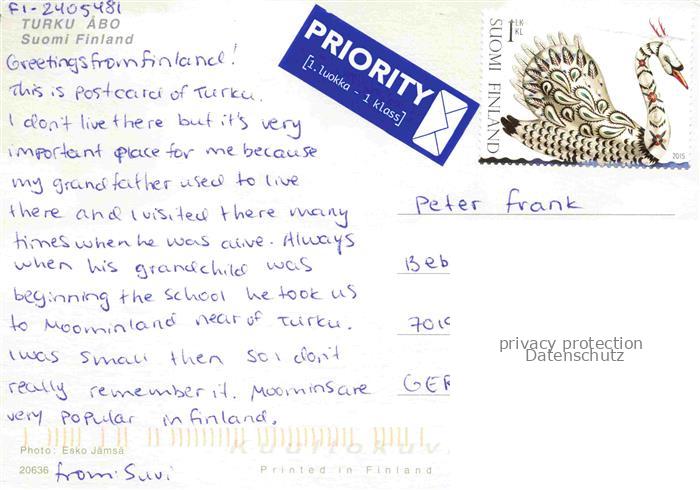 FI-2405481
TURKU ÅBO
Suomi Finland
Greetings from Finland!
This is postcard of Turku.
I don't live there but it's very
important place for me because
my grandfather used to live
there and I visited there many
times when he was alive. Always
when his grandchild was
beginning the school he took us
to Moominland near of Turku.
I was small then so I don't
really remember it. Moomins are
very popular in Finland.
Photo: Esko Jämsä
20636
from: Suvi
Printed in Finland
PRIORITY
[1.luokka - 1 klass]
1 LK
KL
SUOMI FINLAND
2015
Peter Frank
Beb
701
GER
privacy protection
Datenschutz